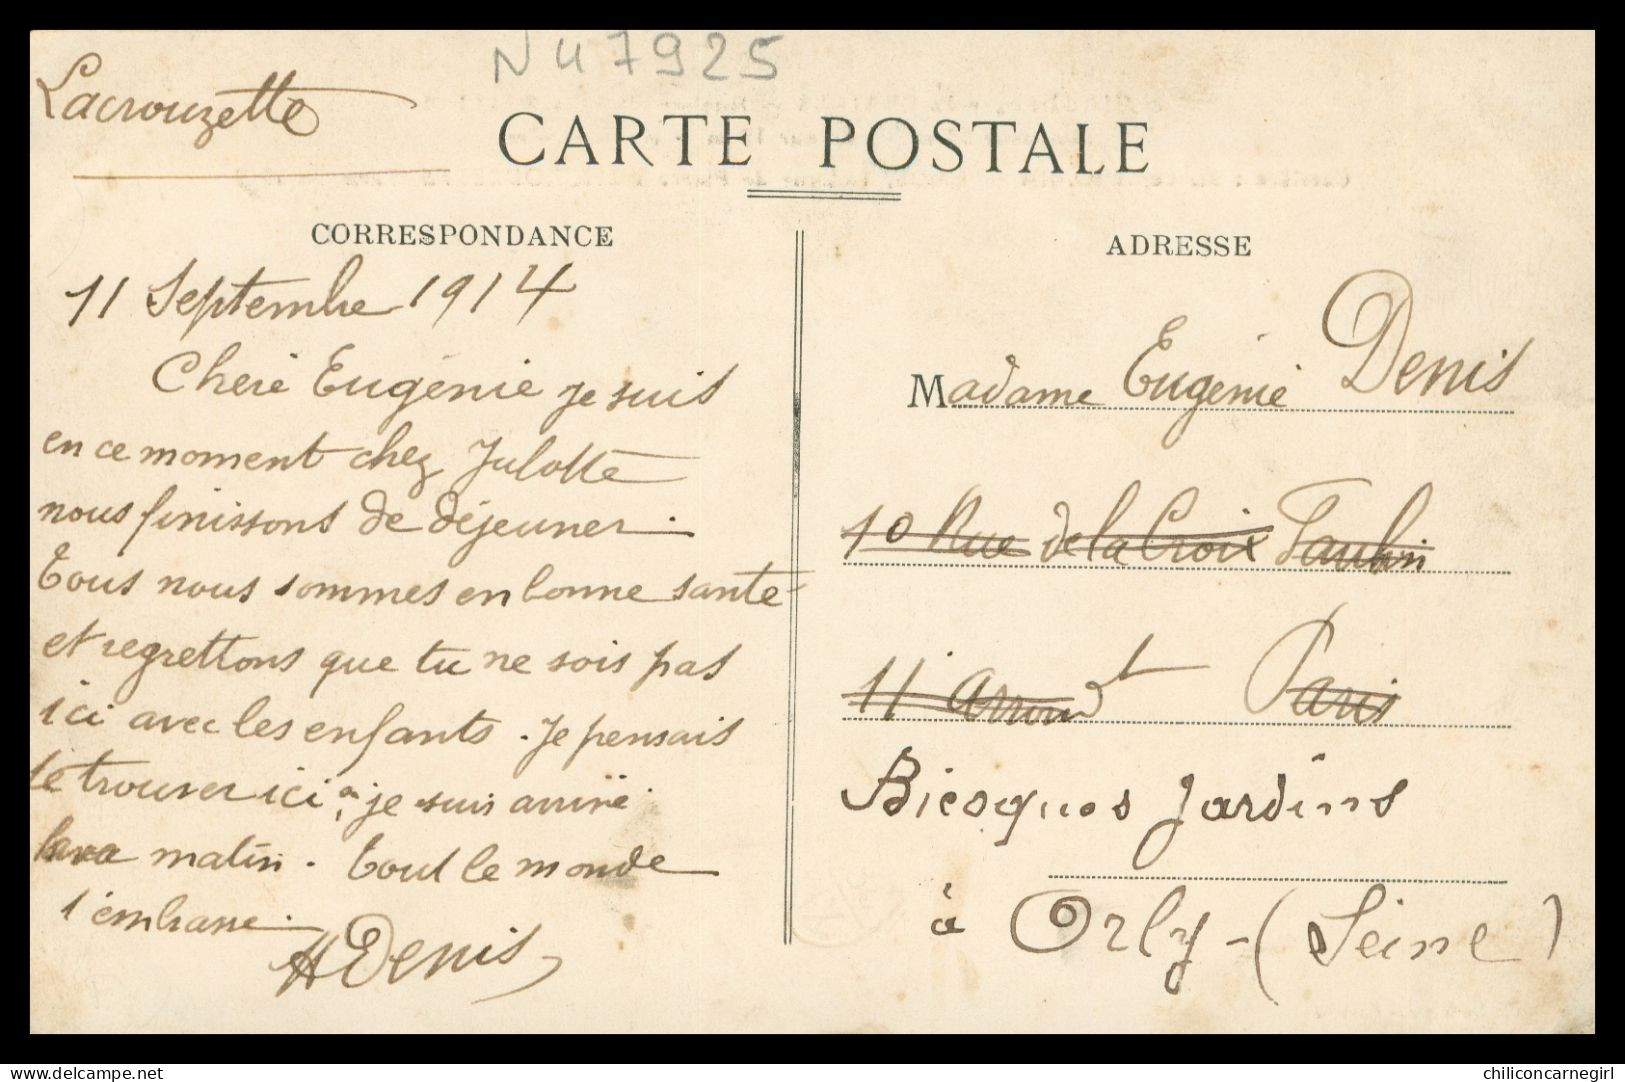 N 47925
Lacrouzette
CARTE POSTALE
CORRESPONDANCE
11 Septembre 1914
Chère Eugénie je suis
en ce moment chez Julotte
nous finissons de déjeuner.
Tous nous sommes en bonne santé
et regrettons que tu ne sois pas
ici avec les enfants. Je pensais
te trouver ici, je suis arrivé
matin. Tout le monde
t'embrasse.
H Denis
ADRESSE
Madame Eugénie Denis
10 Rue de la Croix Faubin
11 arrond.t Paris
Jardins
à Orly - (Seine)
delcampe.net
chiliconcarnegirl